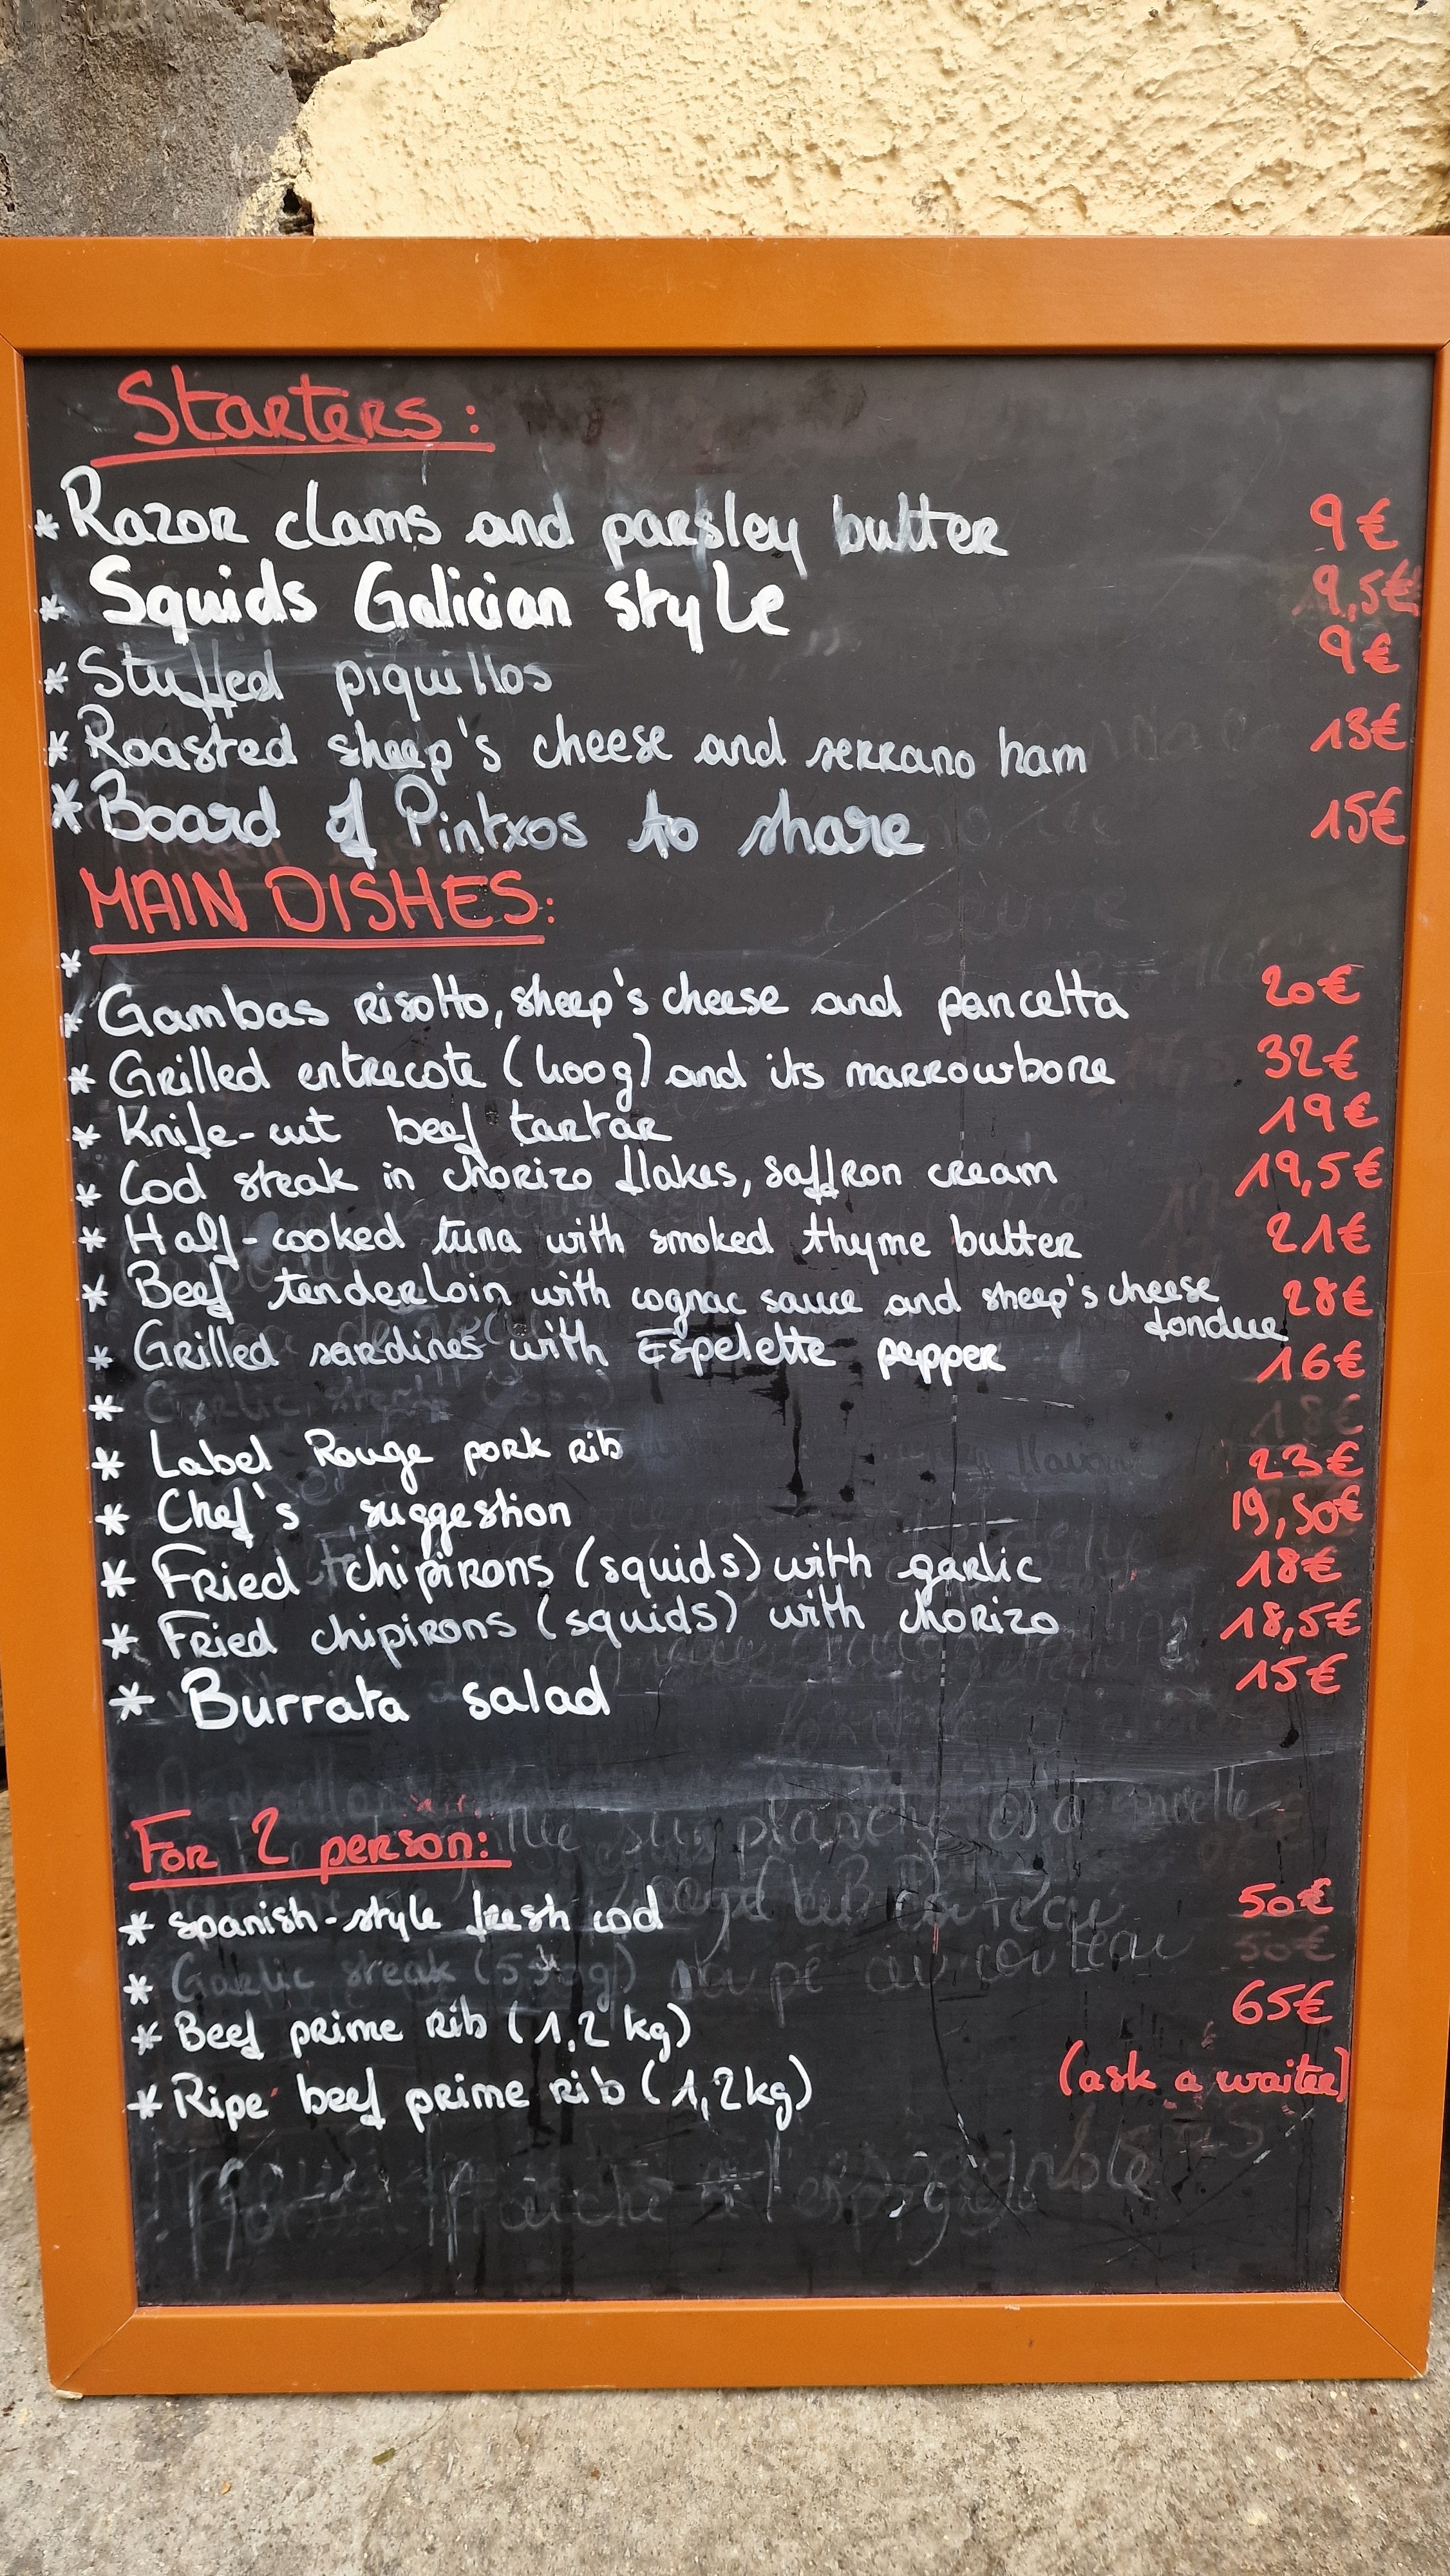 Starters:
* Razor clams and parsley butter 9€
* Squids Galician style 9,5€
* Stuffed piquillos 9€
* Roasted sheep's cheese and serrano ham 13€
* Board of Pintxos to share 15€
MAIN DISHES:
*
* Gambas risotto, sheep's cheese and pancetta 20€
* Grilled entrecote (400g) and its marrowbone 32€
* Knife-cut beef tartar 19€
* Cod steak in chorizo flakes, saffron cream 19,5€
* Half-cooked tuna with smoked thyme butter 21€
* Beef tenderloin with cognac sauce and sheep's cheese 28€
fondue
* Grilled sardines with Espelette pepper 16€
* Garlic steak 18€
* Label Rouge pork rib 23€
* Chef's suggestion 19,50€
* Fried chipirons (squids) with garlic 18€
* Fried chipirons (squids) with chorizo 18,5€
* Burrata salad 15€
For 2 person:
* spanish-style fresh cod 50€
* Garlic steak (550g) 50€
* Beef prime rib (1,2 kg) 65€
* Ripe beef prime rib (1,2kg) (ask a waiter)